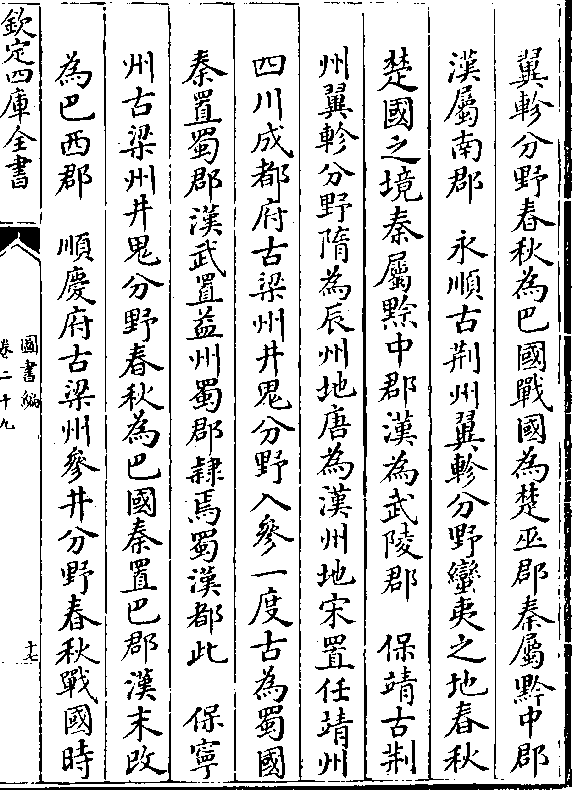 翼軫分野春秋為巴國戰國為楚巫郡秦屬黔中郡
漢屬南郡　永順古荆州翼軫分野蠻夷之地春秋
楚國之境秦屬黔中郡漢為武陵郡　保靖古荆
州翼軫分野隋為辰州地唐為漢州地宋置任靖州
四川成都府古梁州井鬼分野入參一度古為蜀國
秦置蜀郡漢武置益州蜀郡隷焉蜀漢都此　保寧
州古梁州井鬼分野春秋為巴國秦置巴郡漢末改
為巴西郡　順慶府古梁州參井分野春秋戰國時
欽定四庫全書
圖書編
卷二十九
十七